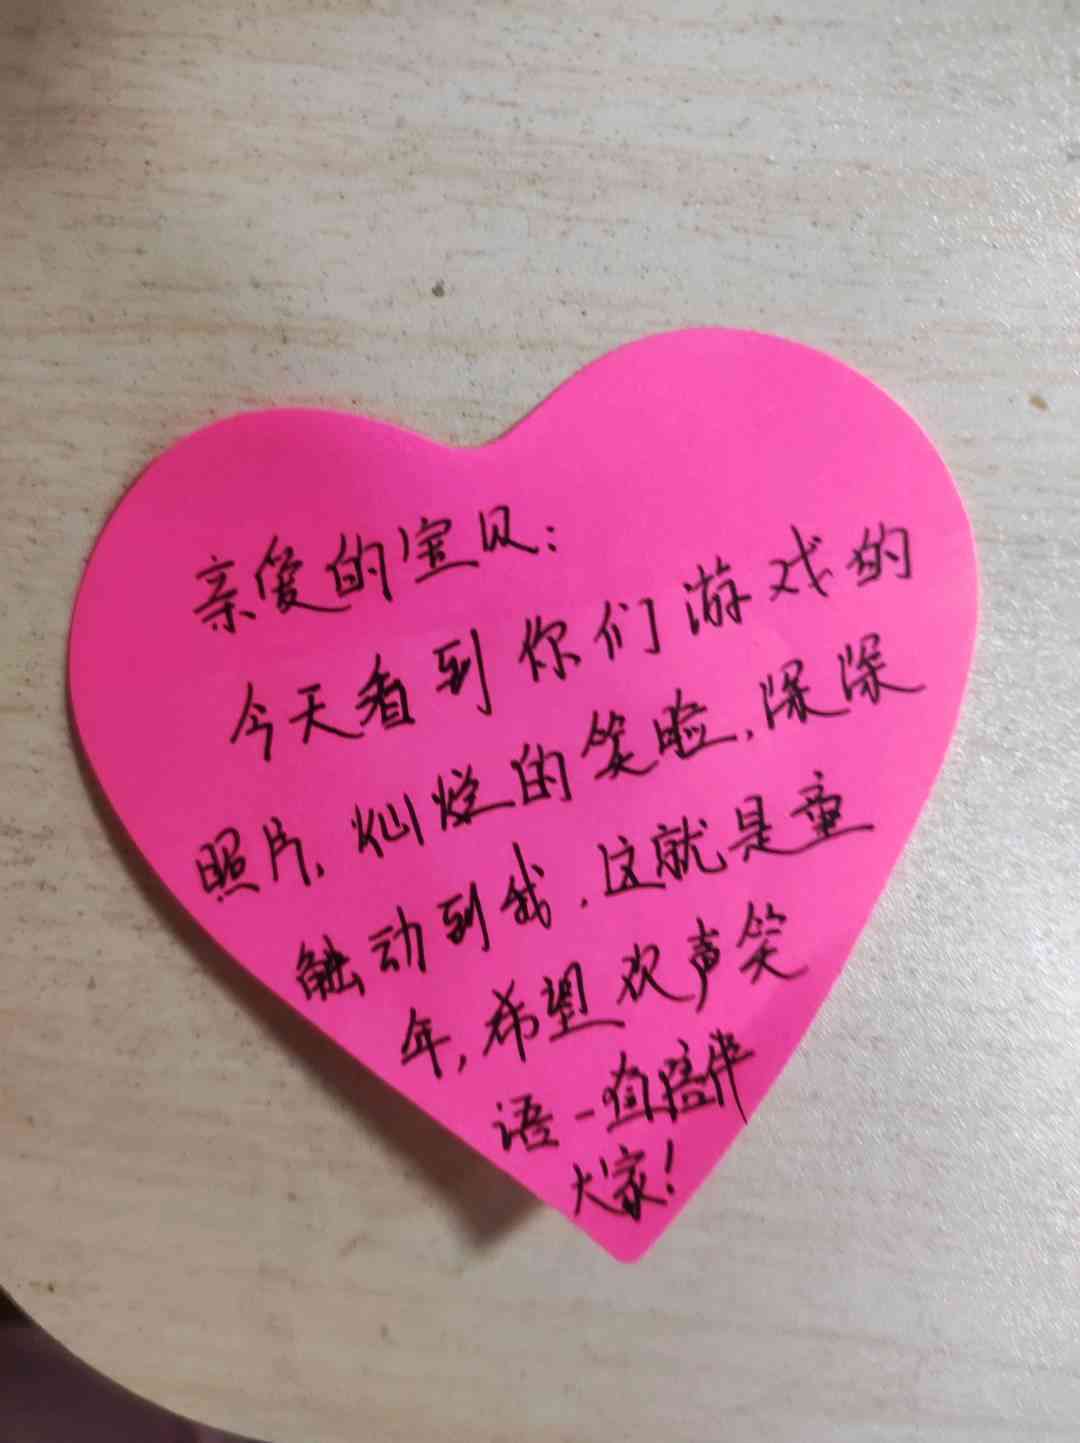 亲爱的宝贝：
今天看到你们游戏的
照片，灿烂的笑脸，深深
触动到我．这就是童
年，希望欢声笑
语一直陪伴
大家！